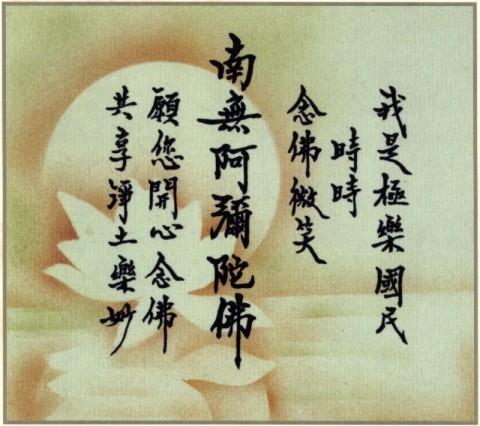 我是極樂國民
時時
念佛微笑
南無阿彌陀佛
願您開心念佛
共享淨土樂妙